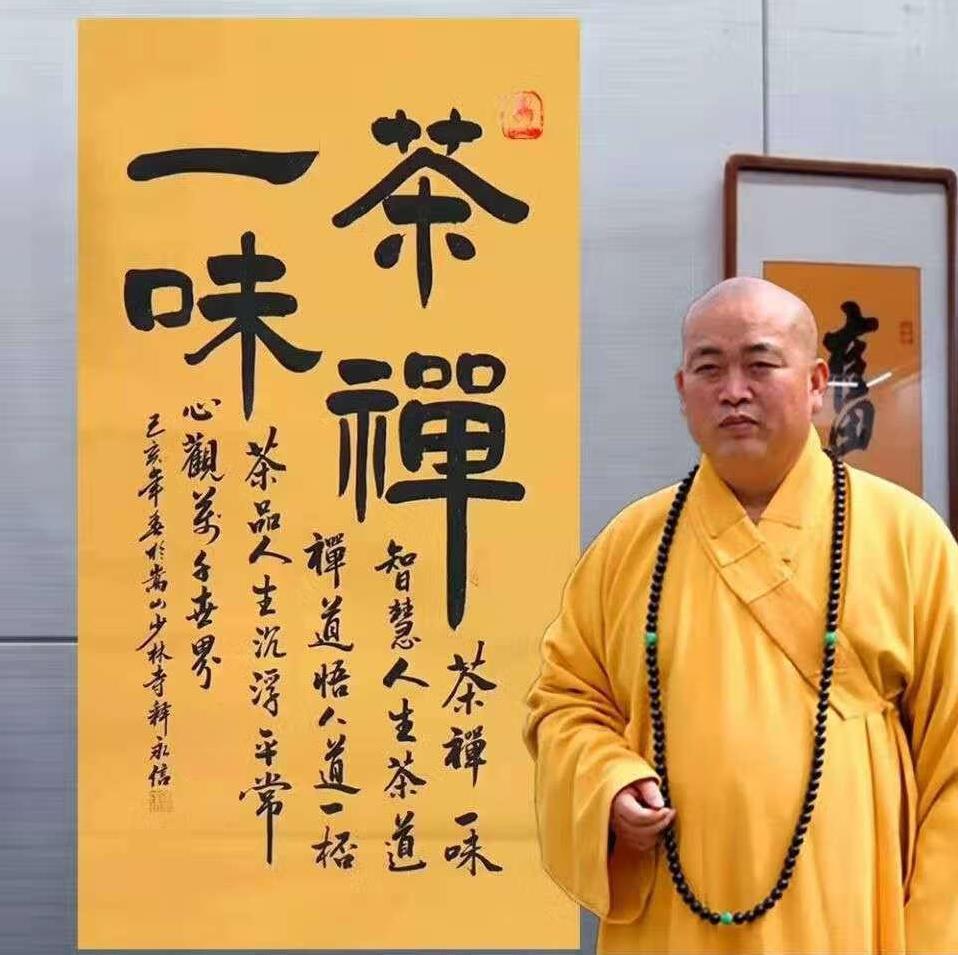 茶禪
一味
茶禪一味
智慧人生茶道
禪道悟人道一桮
茶品人生沉浮平常
心觀萬千世界
己亥年春於嵩山少林寺釋永信